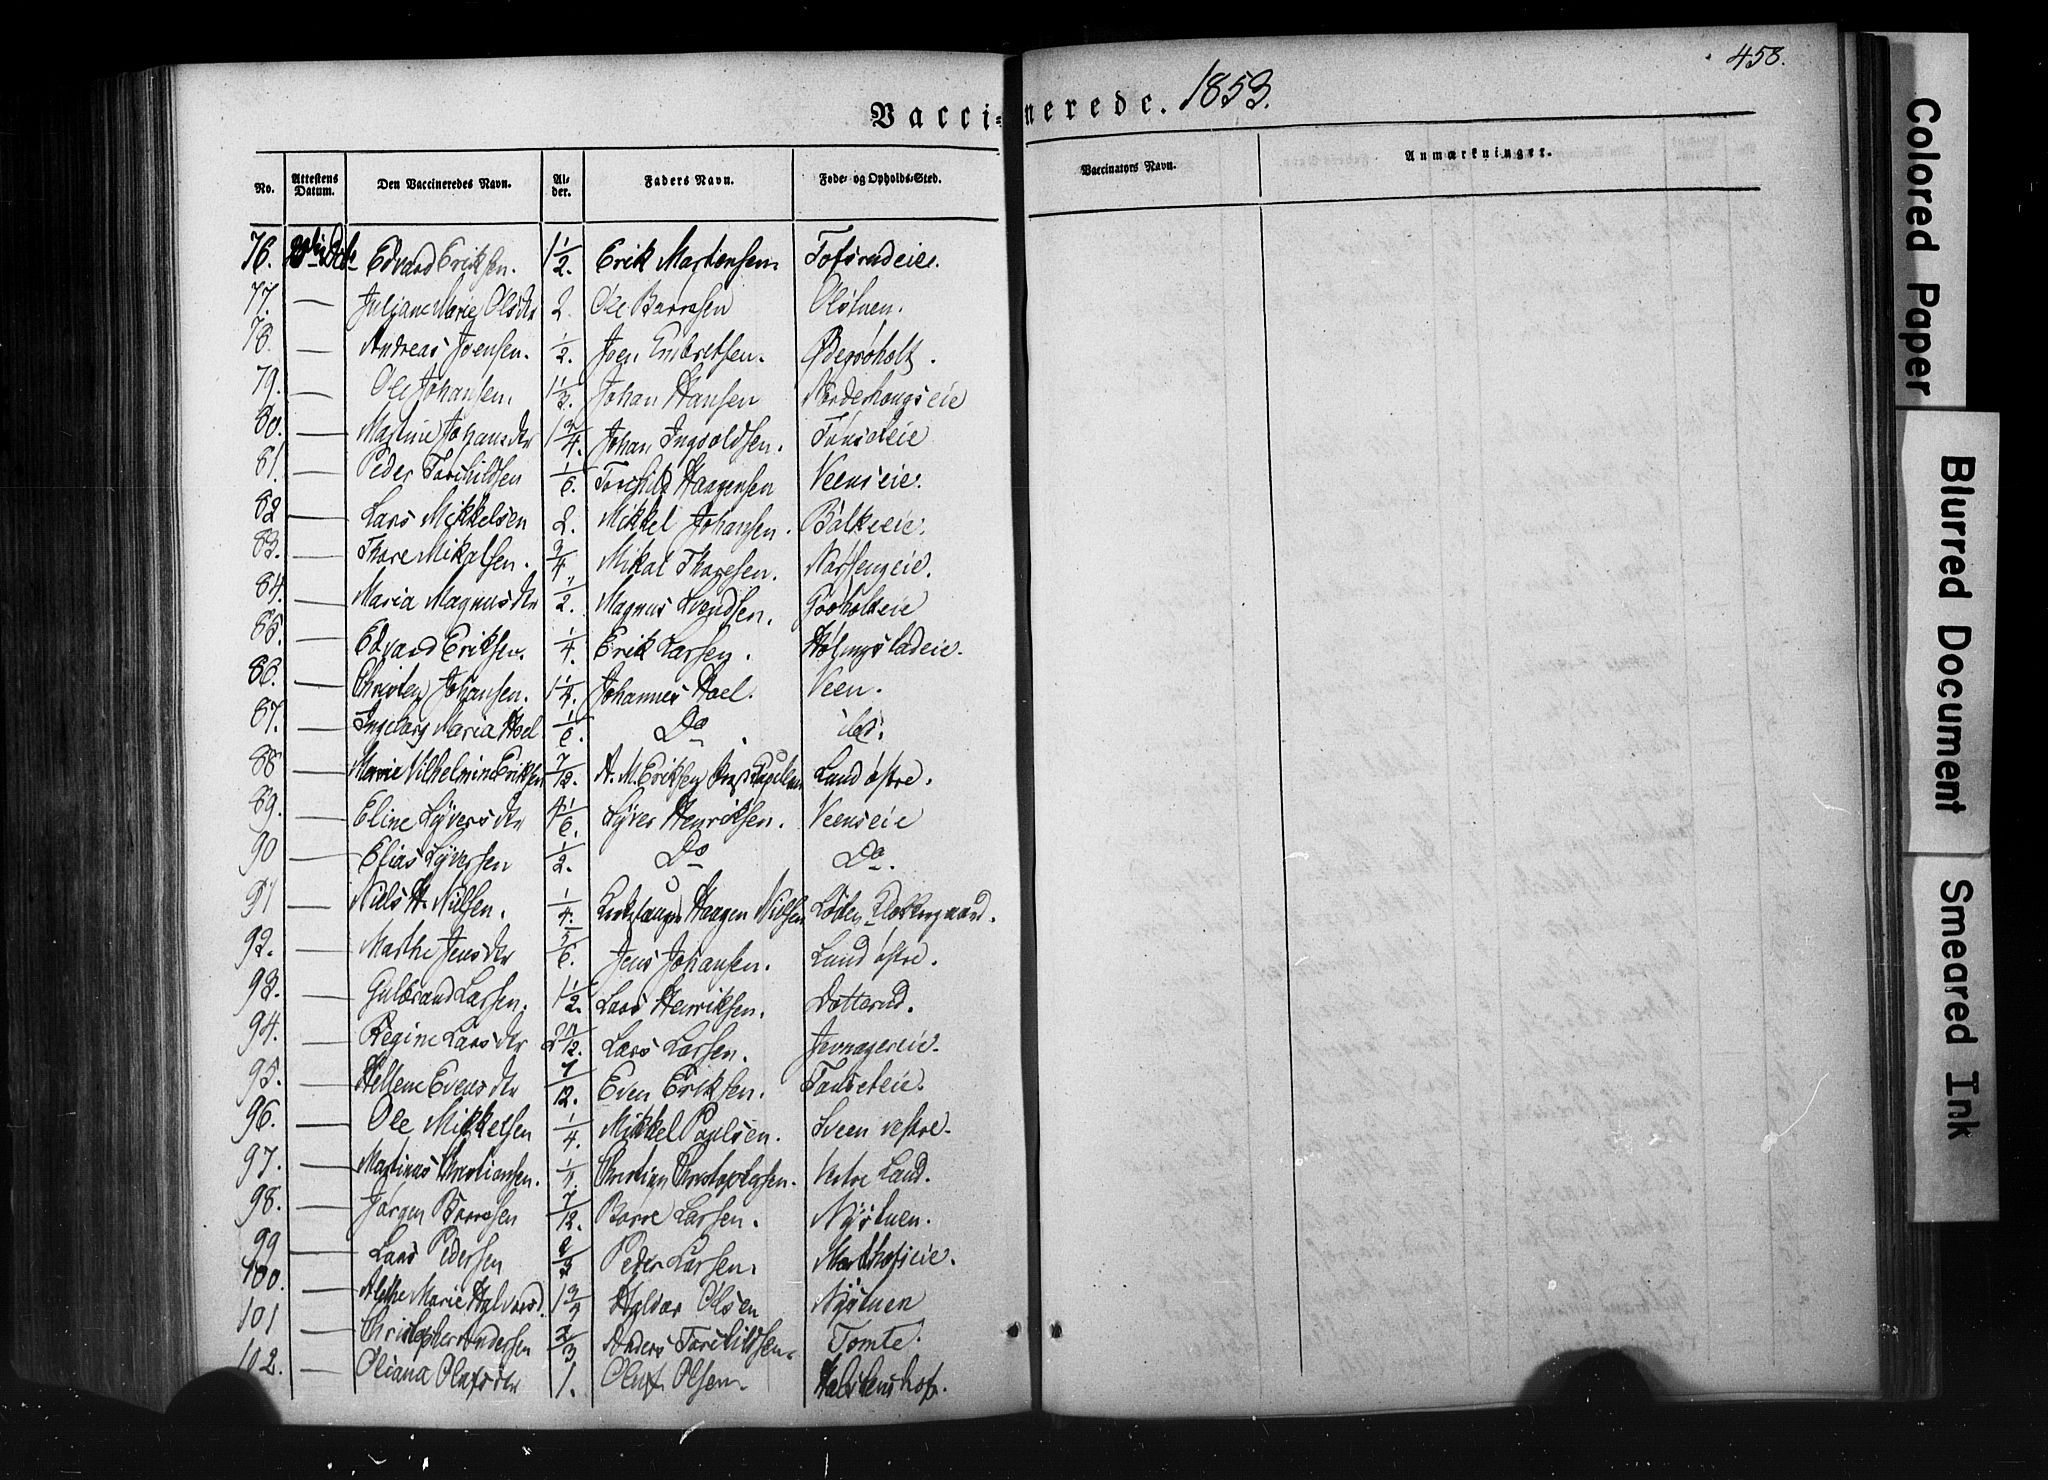 458.
Vaccinerede. 1853.
No. Attestens Datum. Den Vaccineredes Navn. Alder. Faders Navn. Føde- og Opholds-Sted. Vaccinators Navn. Anmærkninger.
76. Edvard Eriksen. 1 1/2. Erik Martensen. Tofsrudeie.
77. — Juliane Marie Olsdtr 2. Ole Borresen Olstuen.
78. — Andreas Joensen. 1/2. Joen Embretsen.
79. — Ole Johansen. 1 1/3. Johan Hansen Norderhougseie
80. — Martine Johansdtr 1 3/4. Johan Ingvoldsen. Tonseteie
81. — Peder Torchildsen 1/6. Torchild Haagensen Veenseie.
82 — Lars Mikkelsen 2. Mikkel Johansen. Balkeeie.
83. — Thore Mikalsen. 3/4. Mikal Thoresen.
84. — Maria Magnusdtr 1/2. Magnus Svendsen.
85. — Edvard Eriksen. 1/4. Erik Larsen. Holmstadeie.
86. — Christen Johansen. 1 1/4. Johannes Hoel. Veen.
87. — Ingeborg Maria Hoel 1/6. Do ibd.
88 — Marie Vilhelmine Eriksen 7/12. A. M. Eriksen Land østre.
89. — Eline Syversdtr 4 1/6. Syver Henriksen. Veenseie
90 — Elias Syversen 1/2. Do Do.
91 — Niels H. Nilsen. 1/4. Haagen Nilsen
92. — Marthe Jensdtr 5/6. Jens Johansen. Land østre.
93. — Gulbrand Larsen. 1 1/2. Lars Henriksen. Dotterud.
94. — Regine Larsdtr Lars Larsen. Jevnagereie.
95. — Hellene Evensdtr 7/12. Even Eriksen. Tonseteie.
96. — Ole Mikkelsen 1/4. Mikkel Paulsen. Sveen vestre.
97. — Martinus Christiansen. 1/4. Christian Christophersen. Vestre Land.
98. — Jørgen Borresen 7/12. Borre Larsen. Nystuen.
99 — Lars Pedersen 2/3 Peder Larsen.
100. — Alethe Marie Halvorsd. 1 3/4 Halvor Olsen Nystuen
101 — Christopher Andersen 2/3 Anders Torchildsen. Tomte.
102. — Oliana Olafsdtr 1. Oluf Olsen. Halstenshof.
Colored Paper
Blurred Document
Smeared Ink